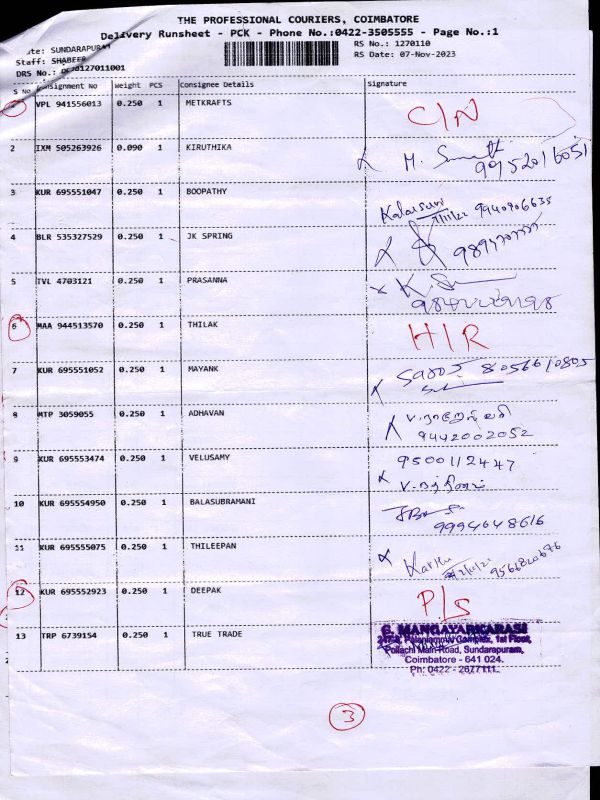 THE PROFESSIONAL COURIERS, COIMBATORE
Delivery Runsheet - PCK - Phone No.:0422-3505555 - Page No.:1
ute: SUNDARAPURAM
RS No.: 1270110
Staff: SHABEER
RS Date: 07-Nov-2023
DRS No.:
S No Consignment No Weight PCS Consignee Details Signature
VPL 941556013 0.250 1 METKRAFTS C/N
2 IXM 505263926 0.090 1 KIRUTHIKA M. 9952016051
3 KUR 695551047 0.250 1 BOOPATHY 9940906635
4 BLR 535327529 0.250 1 JK SPRING
5 TVL 4703121 0.250 1 PRASANNA K.
6 MAA 944513570 0.250 1 THILAK H/R
7 KUR 695551052 0.250 1 MAYANK 8056610805
8 MTP 3059055 0.250 1 ADHAVAN
9442002052
9 KUR 695553474 0.250 1 VELUSAMY 9500112447
10 KUR 695554950 0.250 1 BALASUBRAMANI
9994648616
11 KUR 695555075 0.250 1 THILEEPAN 9566820676
12 KUR 695552923 0.250 1 DEEPAK P/S
13 TRP 6739154 0.250 1 TRUE TRADE S. MANGAYARKARASI
Palaniammal Complex, 1st Floor,
Pollachi Main Road, Sundarapuram,
Coimbatore - 641 024.
Ph: 0422 - 2677111.
3